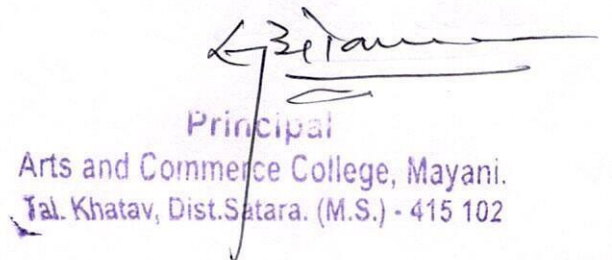 Principal
Arts and Commerce College, Mayani.
Tal. Khatav, Dist.Satara. (M.S.) - 415 102